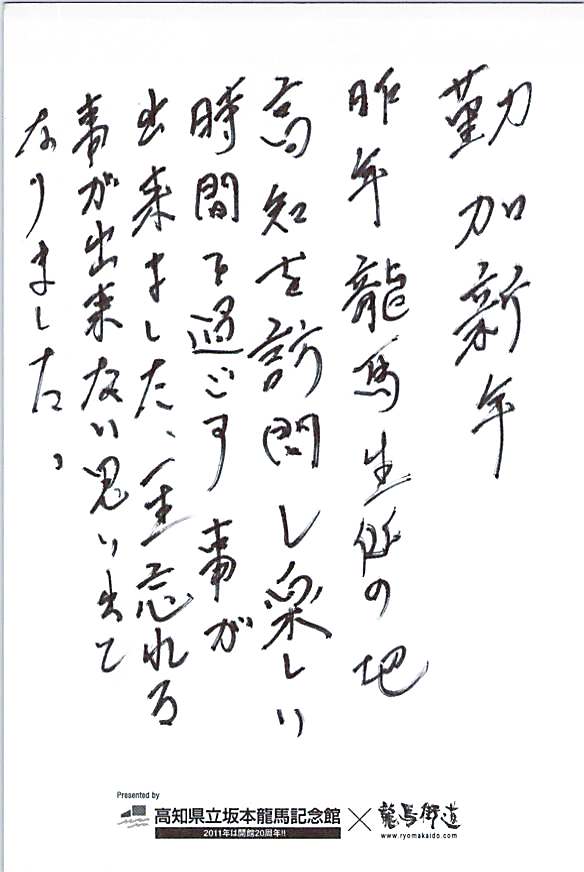 勤加新年
昨年龍馬生誕の地
高知を訪問し楽しい
時間を過ごす事が
出来ました、一生忘れる
事が出来ない思い出と
なりました。
Presented by
高知県立坂本龍馬記念館×龍馬街道
2011年は開館20周年!!
www.ryomakaido.com